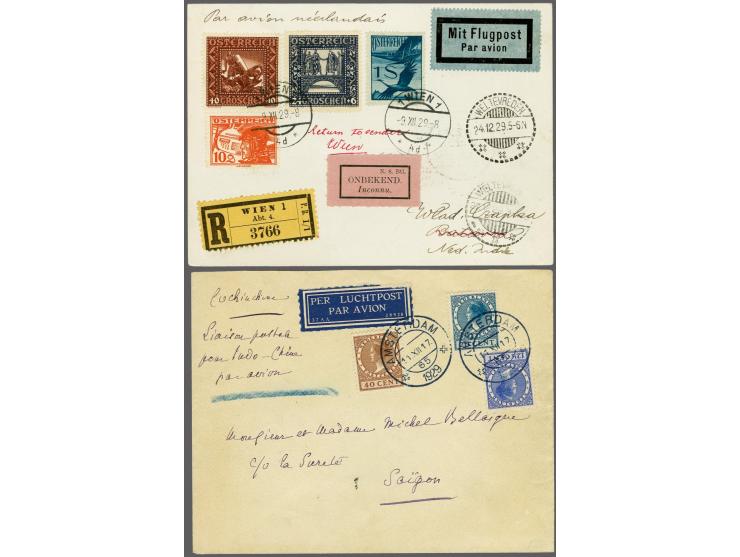 Par avion néerlandais
Mit Flugpost
Par avion
ÖSTERREICH
40 GROSCHEN
ÖSTERREICH
24 GROSCHEN+6
ÖSTERREICH
1S
WIEN
9.XII.29.-8
1 WIEN 1
-9.XII.29.-8
WELTEVREDEN
24.12.29.5-6N
ÖSTERREICH
10
Return to sender
Wien
N. 8. Btl.
ONBEKEND.
Inconnu.
WELTEVREDEN
R
WIEN 1
Abt. 4.
3766
Wlad.
Batavia
Ned. Indie
Cochinchine
PER LUCHTPOST
PAR AVION
Liaison postale
pour Indo-Chine
par avion
AMSTERDAM
11.XII.17
65
1929
AMSTERDAM
40 CENT
Monsieur et Madame Michel Bellasque
c/o la Sureté
Saïgon